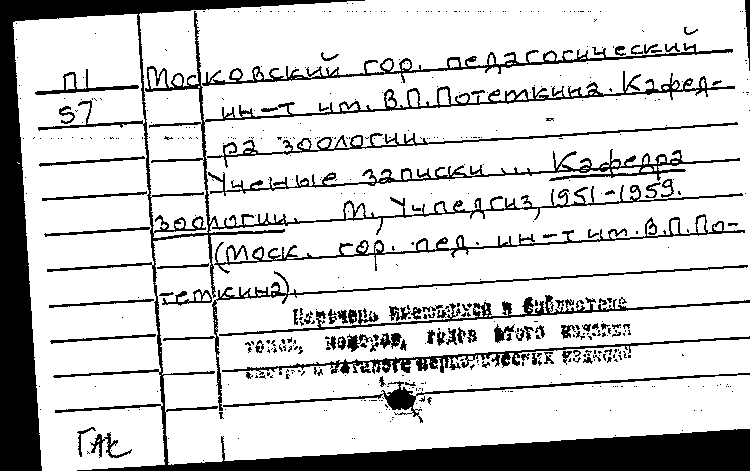 П1 Московский гор. педагогический
57 ин-т им. В.П.Потемкина. Кафед-
ра зоологии.
Ученые записки ... Кафедра
зоологии. М., Учпедгиз, 1951-1959.
(Моск. гор. пед. ин-т им. В.П.По-
темкина).
Перечень имеющихся в библиотеке
томов, номеров, годов этого издания
смотри в каталоге периодических изданий
ГАК